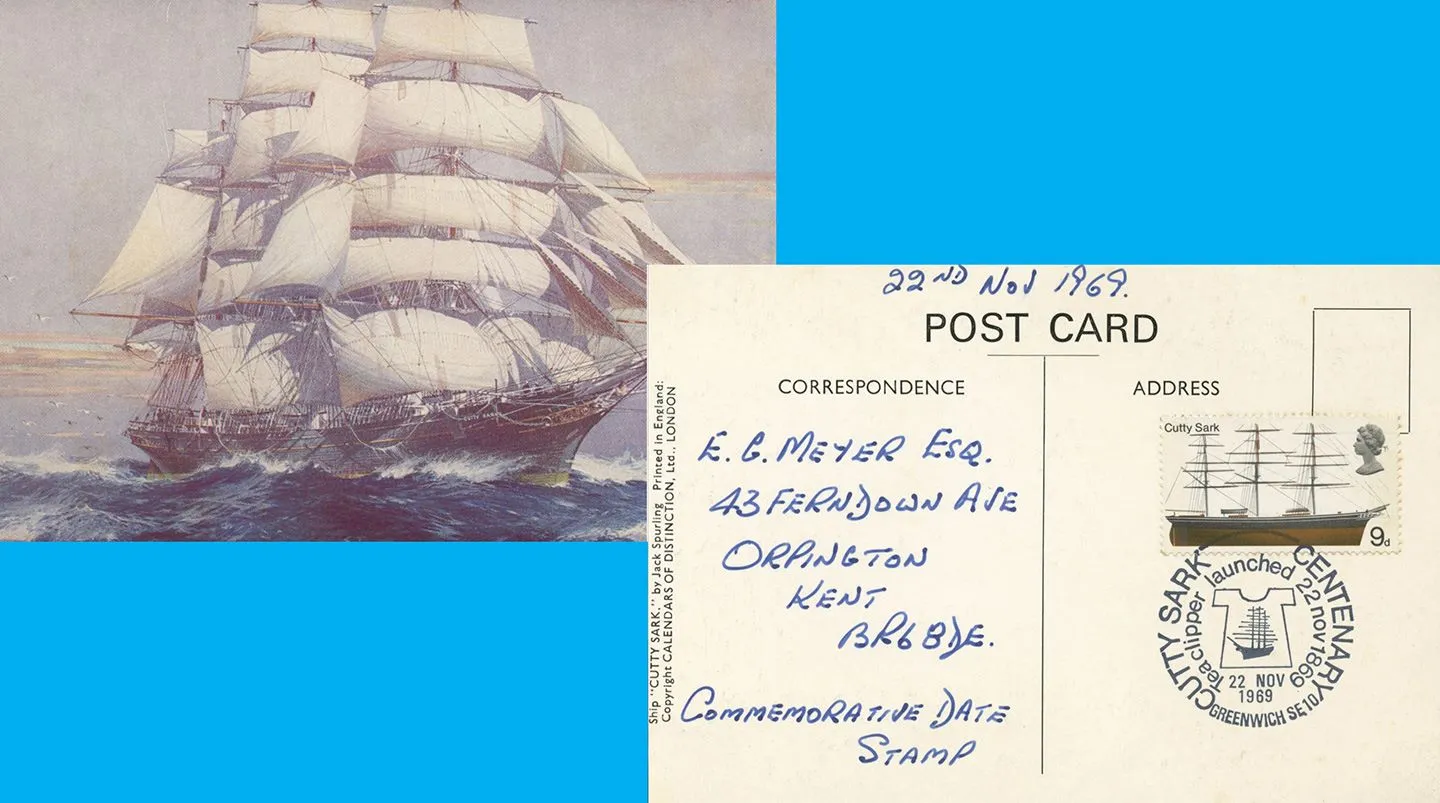 22ND Nov 1969.
POST CARD
CORRESPONDENCE
ADDRESS
E. G. MEYER ESQ.
43 FERNDOWN AVE
ORPINGTON
KENT
BR6 8DE.
COMMEMORATIVE DATE
STAMP
Ship "CUTTY SARK." by Jack Spurling Printed in England:
Copyright CALENDARS OF DISTINCTION, Ltd., LONDON
Cutty Sark
9d
CUTTY SARK CENTENARY
Tea clipper launched 22 nov 1869
22 NOV
1969
GREENWICH SE10